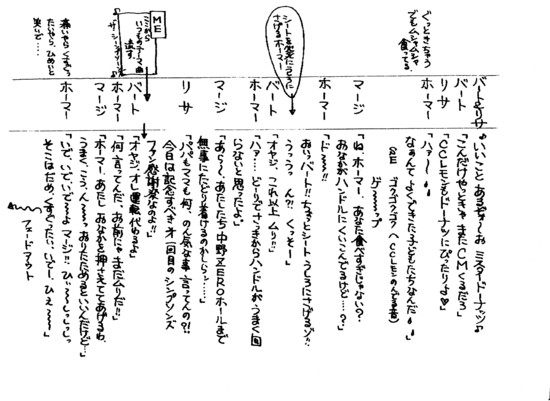 バート&リサ
「♪いいこと あるぞ〜お ミスタードーナッツ♪
バート
「こんだけやっときゃ またCMくるだろう」
リサ
「CCレモンもドーナツにぴったりよ♥」
ホーマー
「ハァ〜
なぁんてよくできた子どもたちなんだ
(SE ゴクゴクゴク へCCレモンのんでる音)
ゲ〜〜〜ップ
ぐっときちゃう
でもムシャムシャ
食ってる
マージ
「ね、ホーマー、あなた食べすぎじゃない?
おなかがハンドルにくいこんでるけど…?」
ホーマー
「ド〜ッ!!
おいっバート!!ちょっとシート うしろにさげるゾ!!
うっうっ ん?! くっそー」
シートを必死にうしろに
さげるホーマー
バート
「オヤジ、これ以上ムリ!!」
ホーマー
「ハァ… どーりでさっきからハンドルが うまく回
らないと思ったよ。」
マージ
「あら〜 あたしたち中野ZEROホールまで
無事にたどり着けるのかしら…」
リサ
「パパもママも何、のん気な事言ってんの?!
今日は記念すべきオ1回目のシンプソンズ
ファン感謝祭なのよ!!」
ME
ここから
いつものテーマ曲
流す
♪ザ・シンプソンズ♪
バート
「オヤジ、オレ運転代わるよ」
ホーマー
「何言ってんだ、お前にゃまだムリだ!!」
マージ
「ホーマー、あたし おなかを押さえててあげるわ、
うまく、こう、ん〜っ おりたためるといいんだけど…」
ホーマー
「いで、いでいで〜よ マージ!! ひぃ〜〜っしっしっ
そこはだめ、くすぐったい、いてー、ひぇ〜〜」
痛いやらくすぐっ
たいやら、ひめいと
笑いで…
フェードアウト